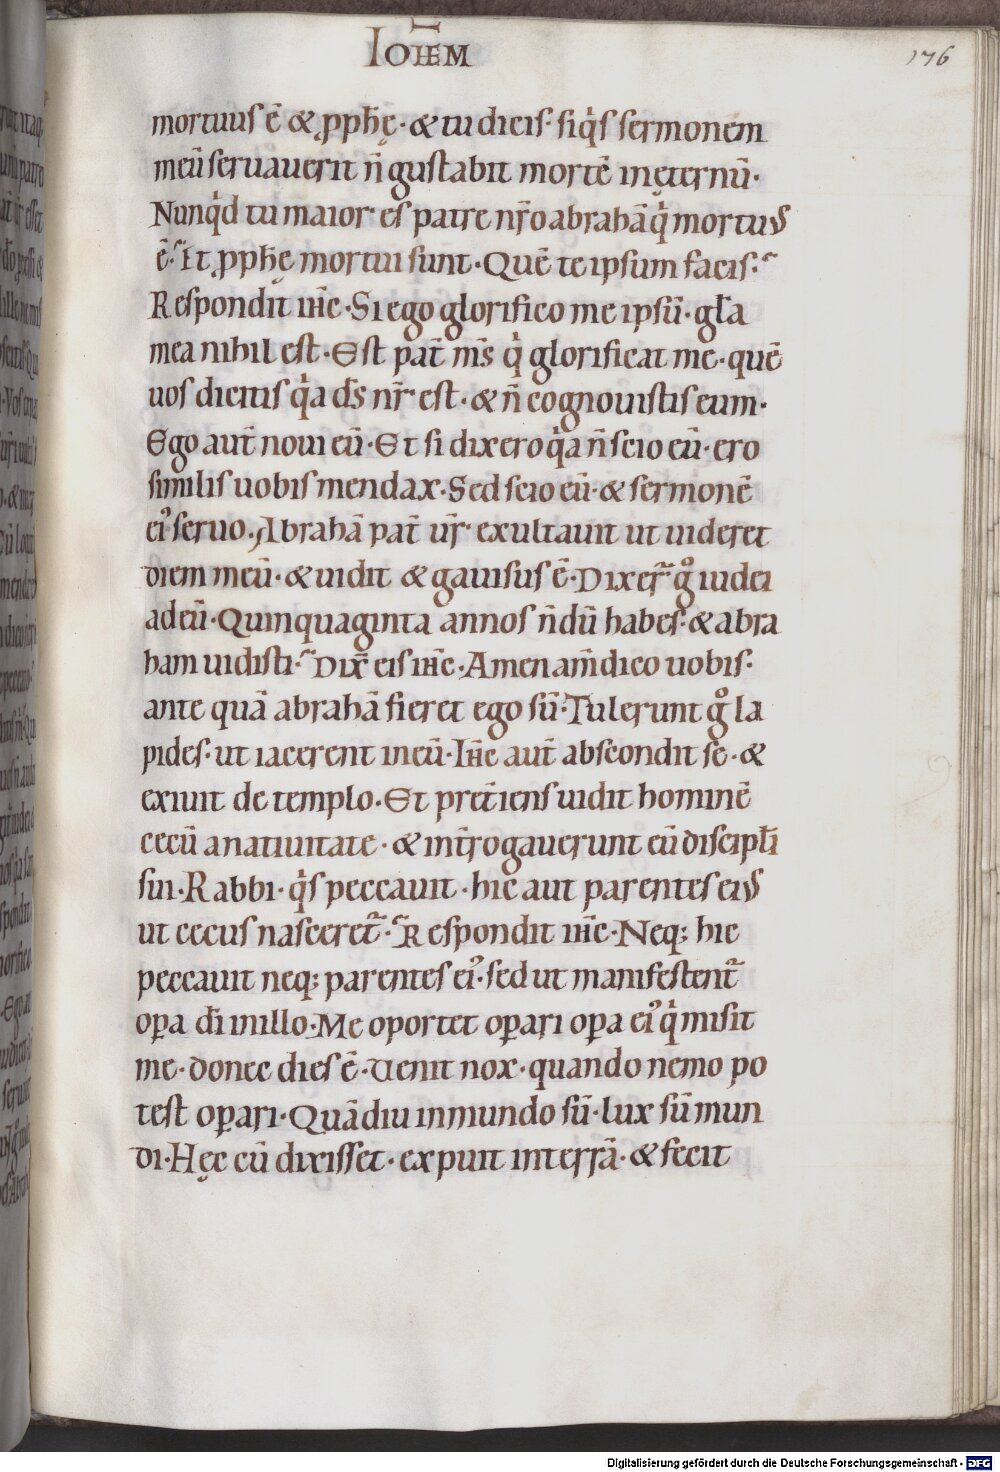 IOHEM
176
mortuus ē & ꝓph̄ę · & tu dicis · siq's sermonem
meū seruauerit n̄ gustabit mortē inęternū ·
Nunq'd tu maior es patre nr̄o abrahā q' mortuus
ē · Et ꝓph̄ę mortui sunt · Quē te ipsum facis ·
Respondit ih̄c · Si ego glorifico me ipsū · gl̄a
mea nihil est · Est pat̄ m̄s q' glorificat me · quē
uos dicitis q'a d̄s nr̄ est · & n̄ cognouistis eum ·
Ego aut̄ noui eū · Et si dixero q'a n̄ scio eū · ero
similis uobis mendax · Sed scio eū · & sermonē
ei' seruo · Abrahā pat̄ ur̄ exultauit ut uideret
diem meū · & uidit & gauisus ē · Dixer̄ gͦ iudei
ad eū · Quinquaginta annos n̄dū habes · & abra
ham uidisti · Dix̄ eis ih̄c · Amen am̄ dico uobis ·
ante quā abrahā fieret ego sū · Tulerunt gͦ la
pides · ut iacerent in eū · Ih̄c aut̄ abscondit se · &
exiuit de templo · Et pret̄iens uidit hominē
cecū anatiuitate · & int̄rogauerunt eū discipl̄i
sui · Rabbi · q's peccauit · hic aut parentes eius
ut cecus nasceret̄ · Respondit ih̄c · Neq; hic
peccauit neq; parentes ei' · sed ut manifestent̄
oꝑa dī inillo · Me oportet oꝑari oꝑa ei' q' misit
me · donec dies ē · Uenit nox · quando nemo po
test oꝑari · Quādiu inmundo sū · lux sū mun
di · Hęc cū dixisset · expuit interrā · & fecit
Digitalisierung gefördert durch die Deutsche Forschungsgemeinschaft - DFG